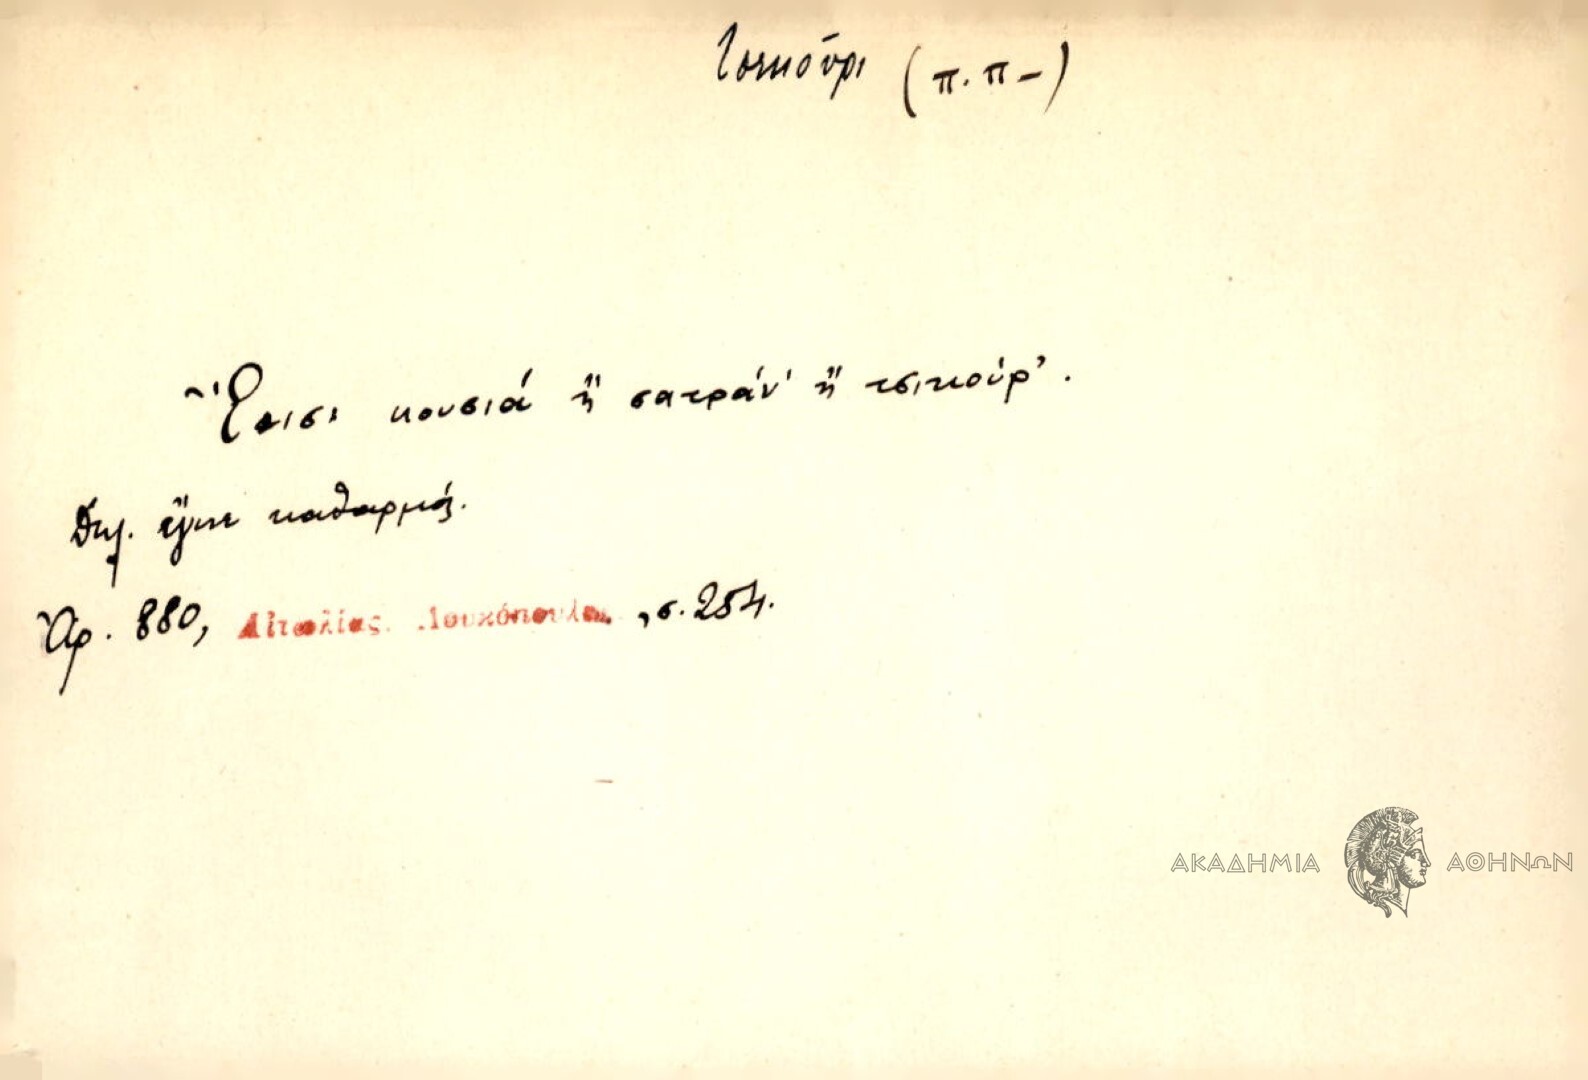 Τσεκούρι (π.π-)
Ἔπισι κουσιά ἤ σατράν' ἤ τσικούρ'.
Δηλ. ἔγινε καθαρμός.
Ἀρ. 880, Αἰτωλίας Λουκόπουλου, σ. 254.
ΑΚΑΔΗΜΙΑ ΑΘΗΝΩΝ